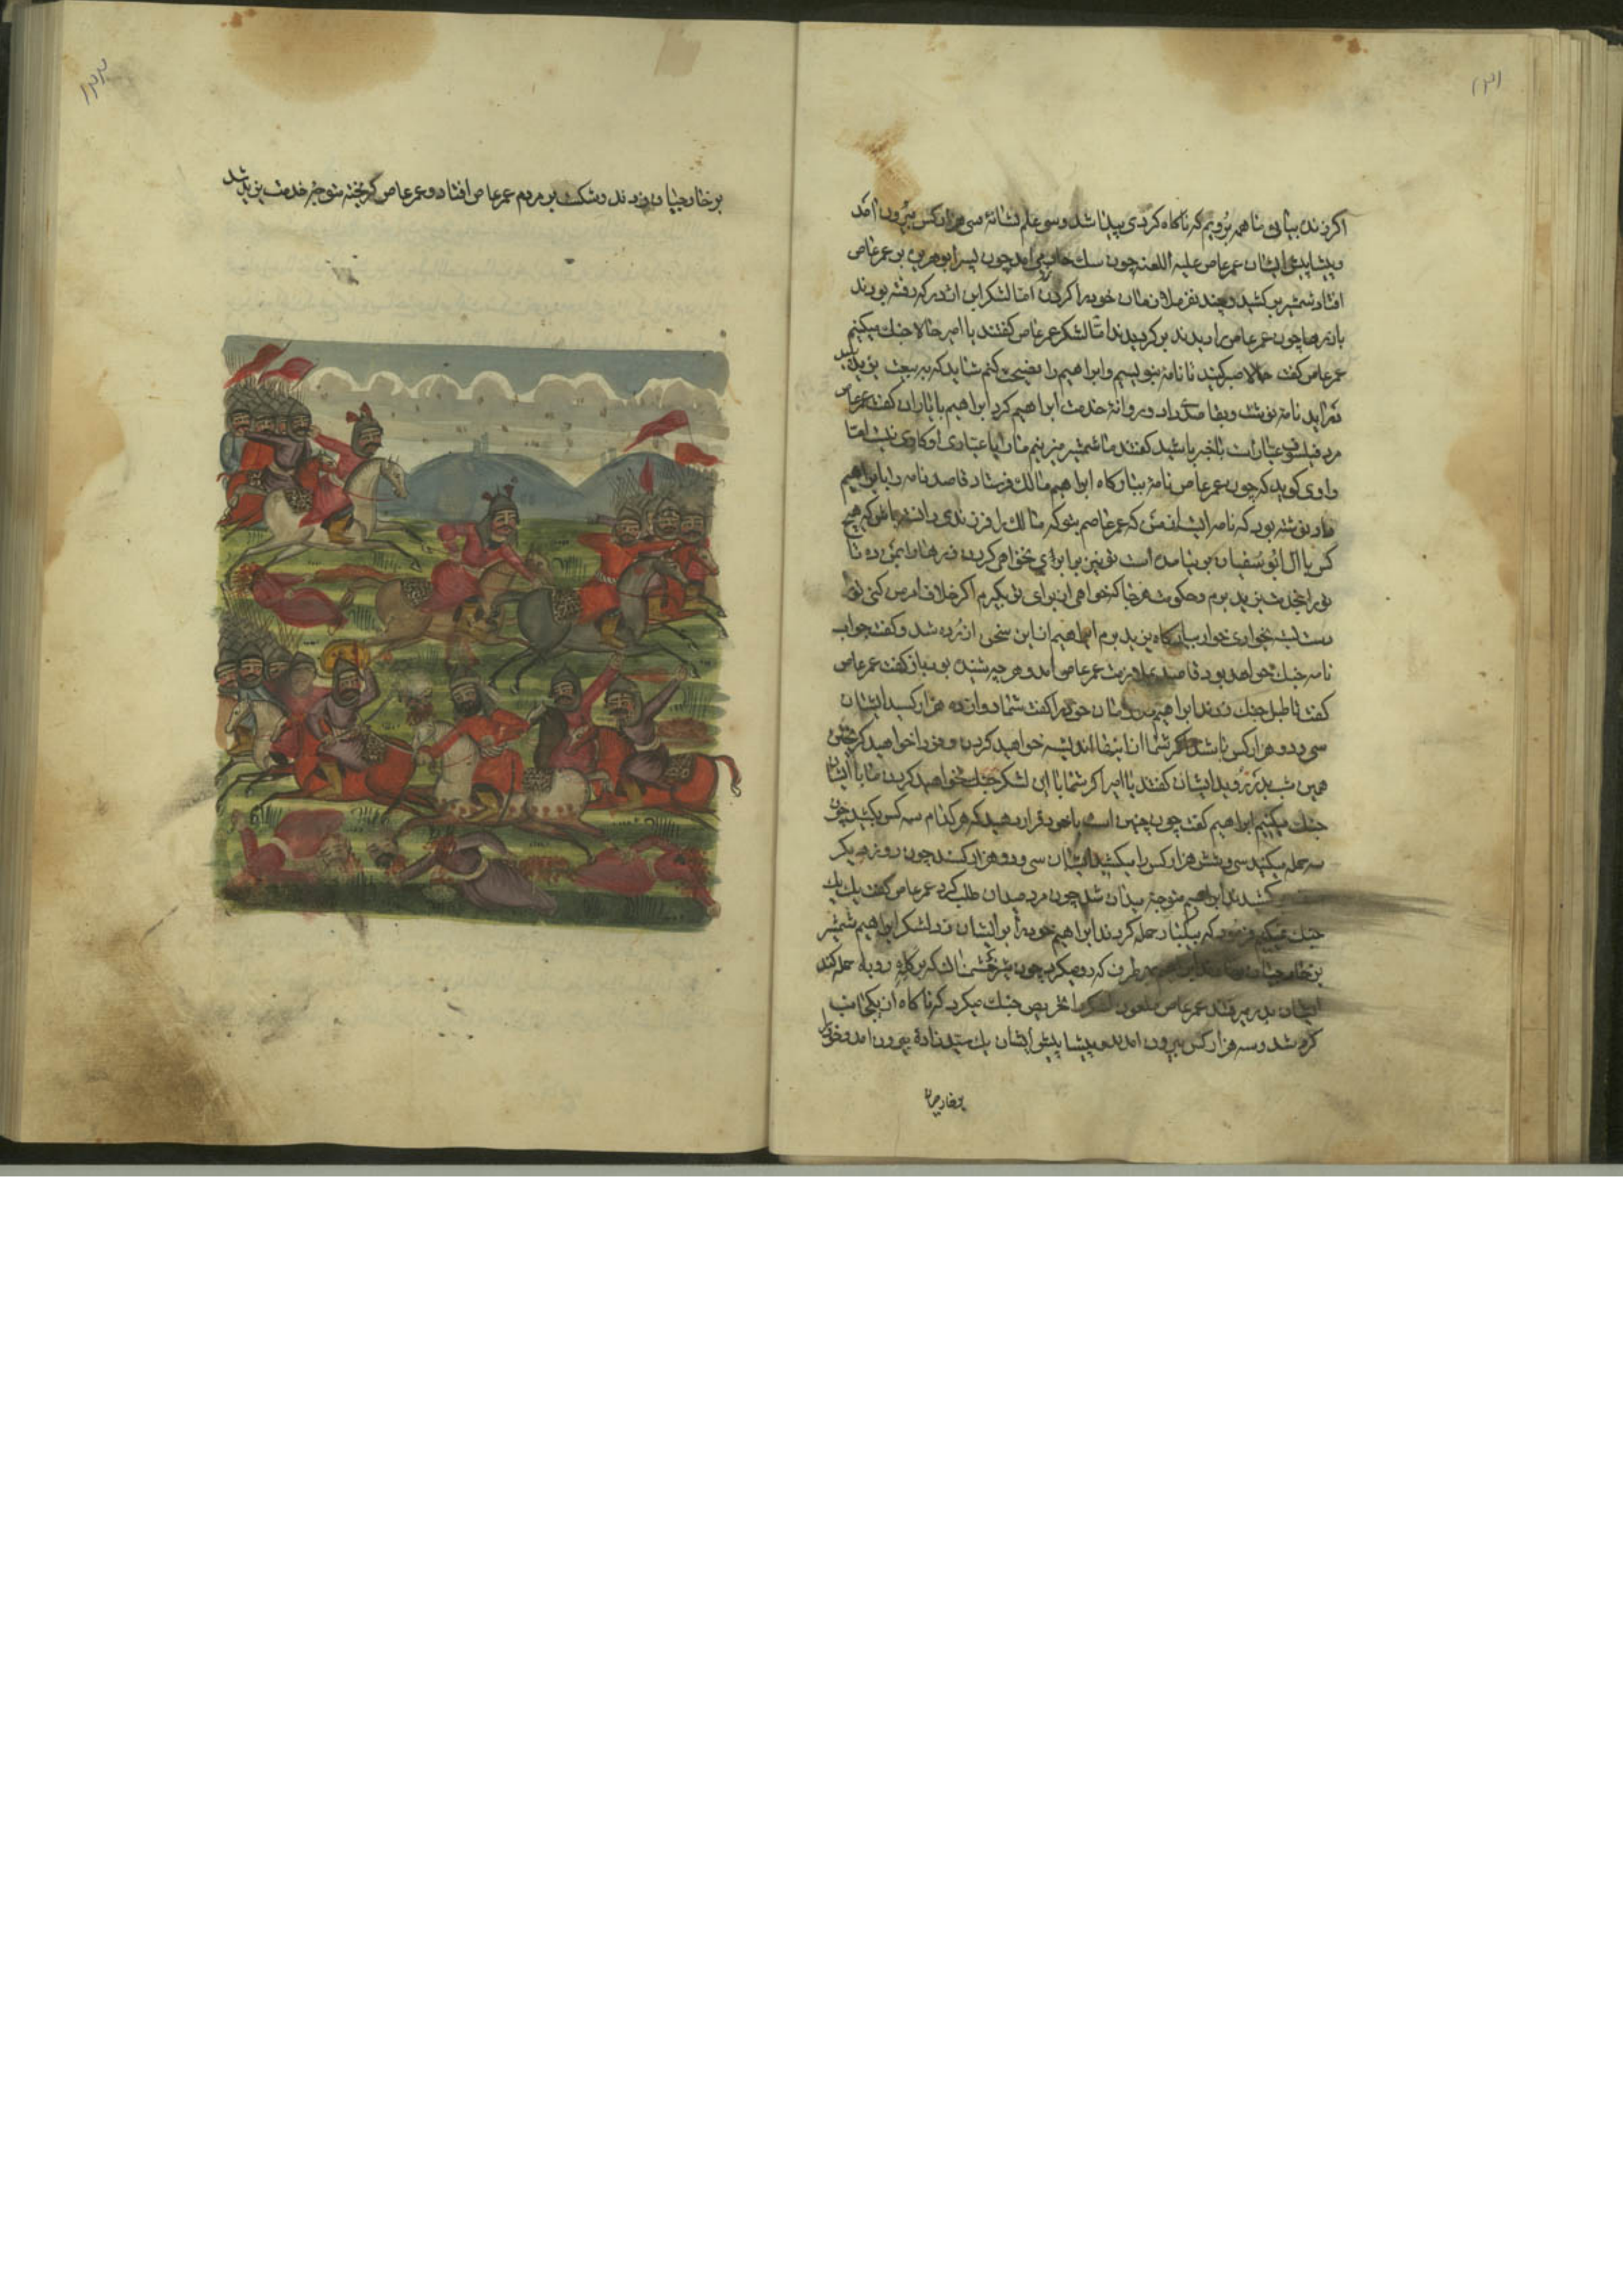 ۱۳۱
اگر زنده بیائی ما همه برویم که ناکاه کردی پیدا شد و سی علم نشانهٔ سی هزار کس بیرون آمد
و پیشاپیش ایشان عمر عاص علیه اللعنه چون سک می‌آمد چون بر عمر عاص
افتاد شمشیر بر کشید و چند نفر ملازمان خود را اما لشکر ابن که رفته بودند
چون عمر عاص را دیدند بر کردیدند اما لشکر عمر عاص کفتند یا امیر حالا جنك میکنیم
عمر عاص کفت حالا صبر کنید تا نامه بنویسیم و ابراهیم را نصیحت کنم شاید که به بیعت یزید
در آید نامه نوشت و بقاصدی داد و روانهٔ خدمت ابراهیم کرد ابراهیم با یاران کفت عمر عاص
مرد فیلسوف عیار است باخبر باشید کفتند ما شمشیر میزنیم ما را با عیاری او کاری نیست اما
راوی کوید که چون عمر عاص نامه به ابراهیم مالك فرستاد قاصد نامه را بابراهیم
داد نوشته بود که نامه ایست از من که عمر عاصم بتو که مالك را فرزندی که هیچ
کس با آل ابو سفیان بر نیامده است تو نیز برابری نخواهی کرد
تو را بخدمت یزید برم و حکومت هر جا که خواهی از برای تو بکیرم اکر خلاف امر من کنی تو را
دست بسته بخواری خوار یزید برم ابراهیم از این سخن آزرده شد و کفت جواب
نامه جنك خواهد بود قاصد عمر عاص آمد و هر چه شنیده بود باز کفت عمر عاص
کفت تا طبل جنك زدند ابراهیم خود را کفت شما دوازده هزار کسید ایشان
سی و دو هزار کس باشد اکر شما از اینها اندیشه خواهید کردن و فردا خواهید کریخت
همین شب بدر روید ایشان کفتند یا امیر اکر شما با این لشکر جنك خواهید کردن ما با ایشان
جنك میکنیم ابراهیم کفت چون چنین است با خود قرار دهید که هر کدام سه کس بکشید چون
سه حمله میکنید سی و شش هزار کس را میکشید ایشان سی و دو هزار کسند چون روز دیکر
کشیدند ابراهیم متوجه میدان شد چون مرد میدان طلب کرد عمر عاص کفت یك یك
جنك فرمود که بیکبار حمله کردند ابراهیم خود را بر ایشان زد لشکر ابراهیم شمشیر
بر خارجیان طرف که رو میکرد چون شیر خشمناك که بر کله روباه حمله کند
ایشان بدر میرفتند عمر عاص ملعون لشکر را تحریص جنك میکرد که ناکاه از یکجانب
کرد شد و سه هزار کس بیرون آمدند و پیشاپیش ایشان یك سید زادهٔ بیرون آمد و خود را
بر خارجیان
۱۳۲
بر خارجیان زدند و شکست بر مردم عمر عاص افتاد و عمر عاص کریخته متوجه خدمت یزید شد